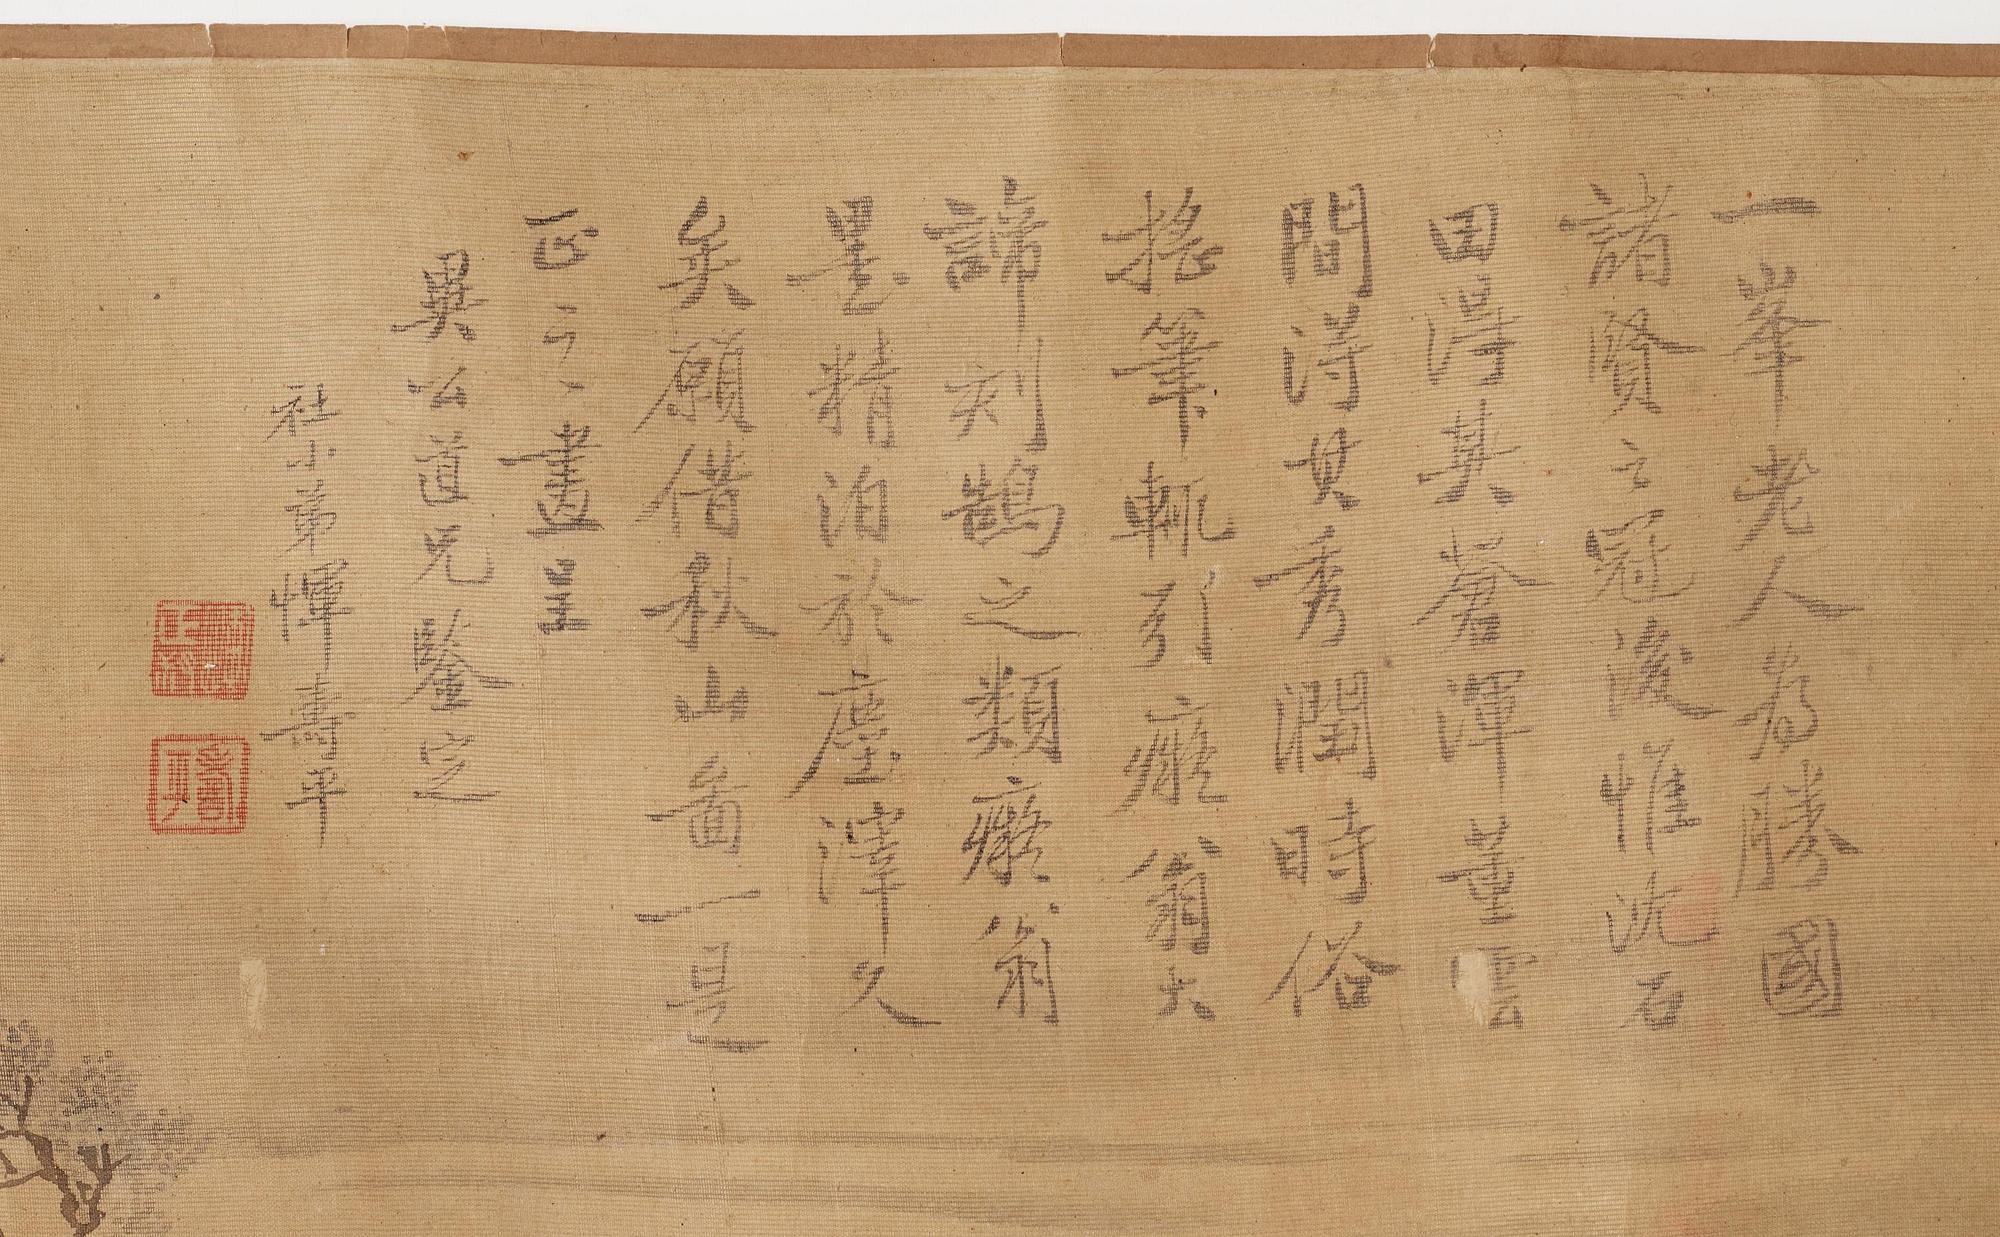 一峯老人為勝國
諸賢之冠後惟沈石
田得其蒼渾董雲
間得其秀潤時俗
搖筆輒引癡翁大
諦刻鵠之類癡翁
墨精泊於塵滓久
矣願借秋山啚一是
正之畫呈
異公道兄鑒定
社小弟惲壽平